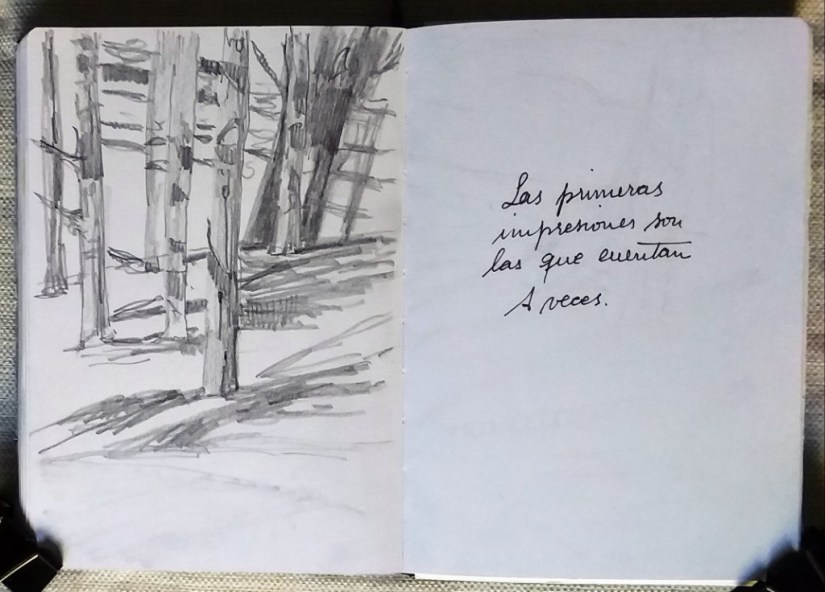 Las primeras
impresiones son
las que cuentan
A veces.